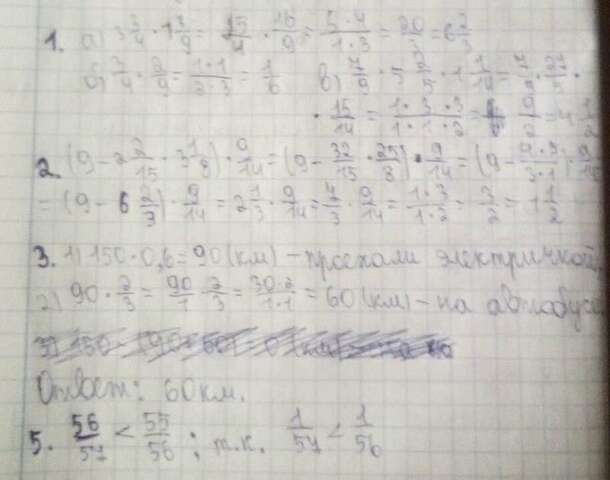 1. а) 3 3/4 · 1 7/9 = 15/4 · 16/9 = 5·4/1·3 = 20/3 = 6 2/3
б) 3/4 · 2/9 = 1·1/2·3 = 1/6 в) 7/9 · 5 2/5 · 1 1/14 = 7/9 · 27/5 ·
· 15/14 = 1·3·3/1·1·2 = 9/2 = 4 1/2
2. (9 - 2 2/15 · 3 1/8) · 9/14 = (9 - 32/15 · 25/8) · 9/14 = (9 - ) · 9/14
= (9 - 6 2/3) · 9/14 = 2 1/3 · 9/14 = · 9/14 = 1·3/1·2 = 3/2 = 1 1/2
3. 1) 150 · 0,6 = 90 (км) - проехали электричкой
2) 90 · 2/3 = 90/1 · 2/3 = 30·2/1·1 = 60 (км) - на автобусе
Ответ: 60 км.
5. 56/57 < 55/56 ; т.к. 1/57 < 1/56